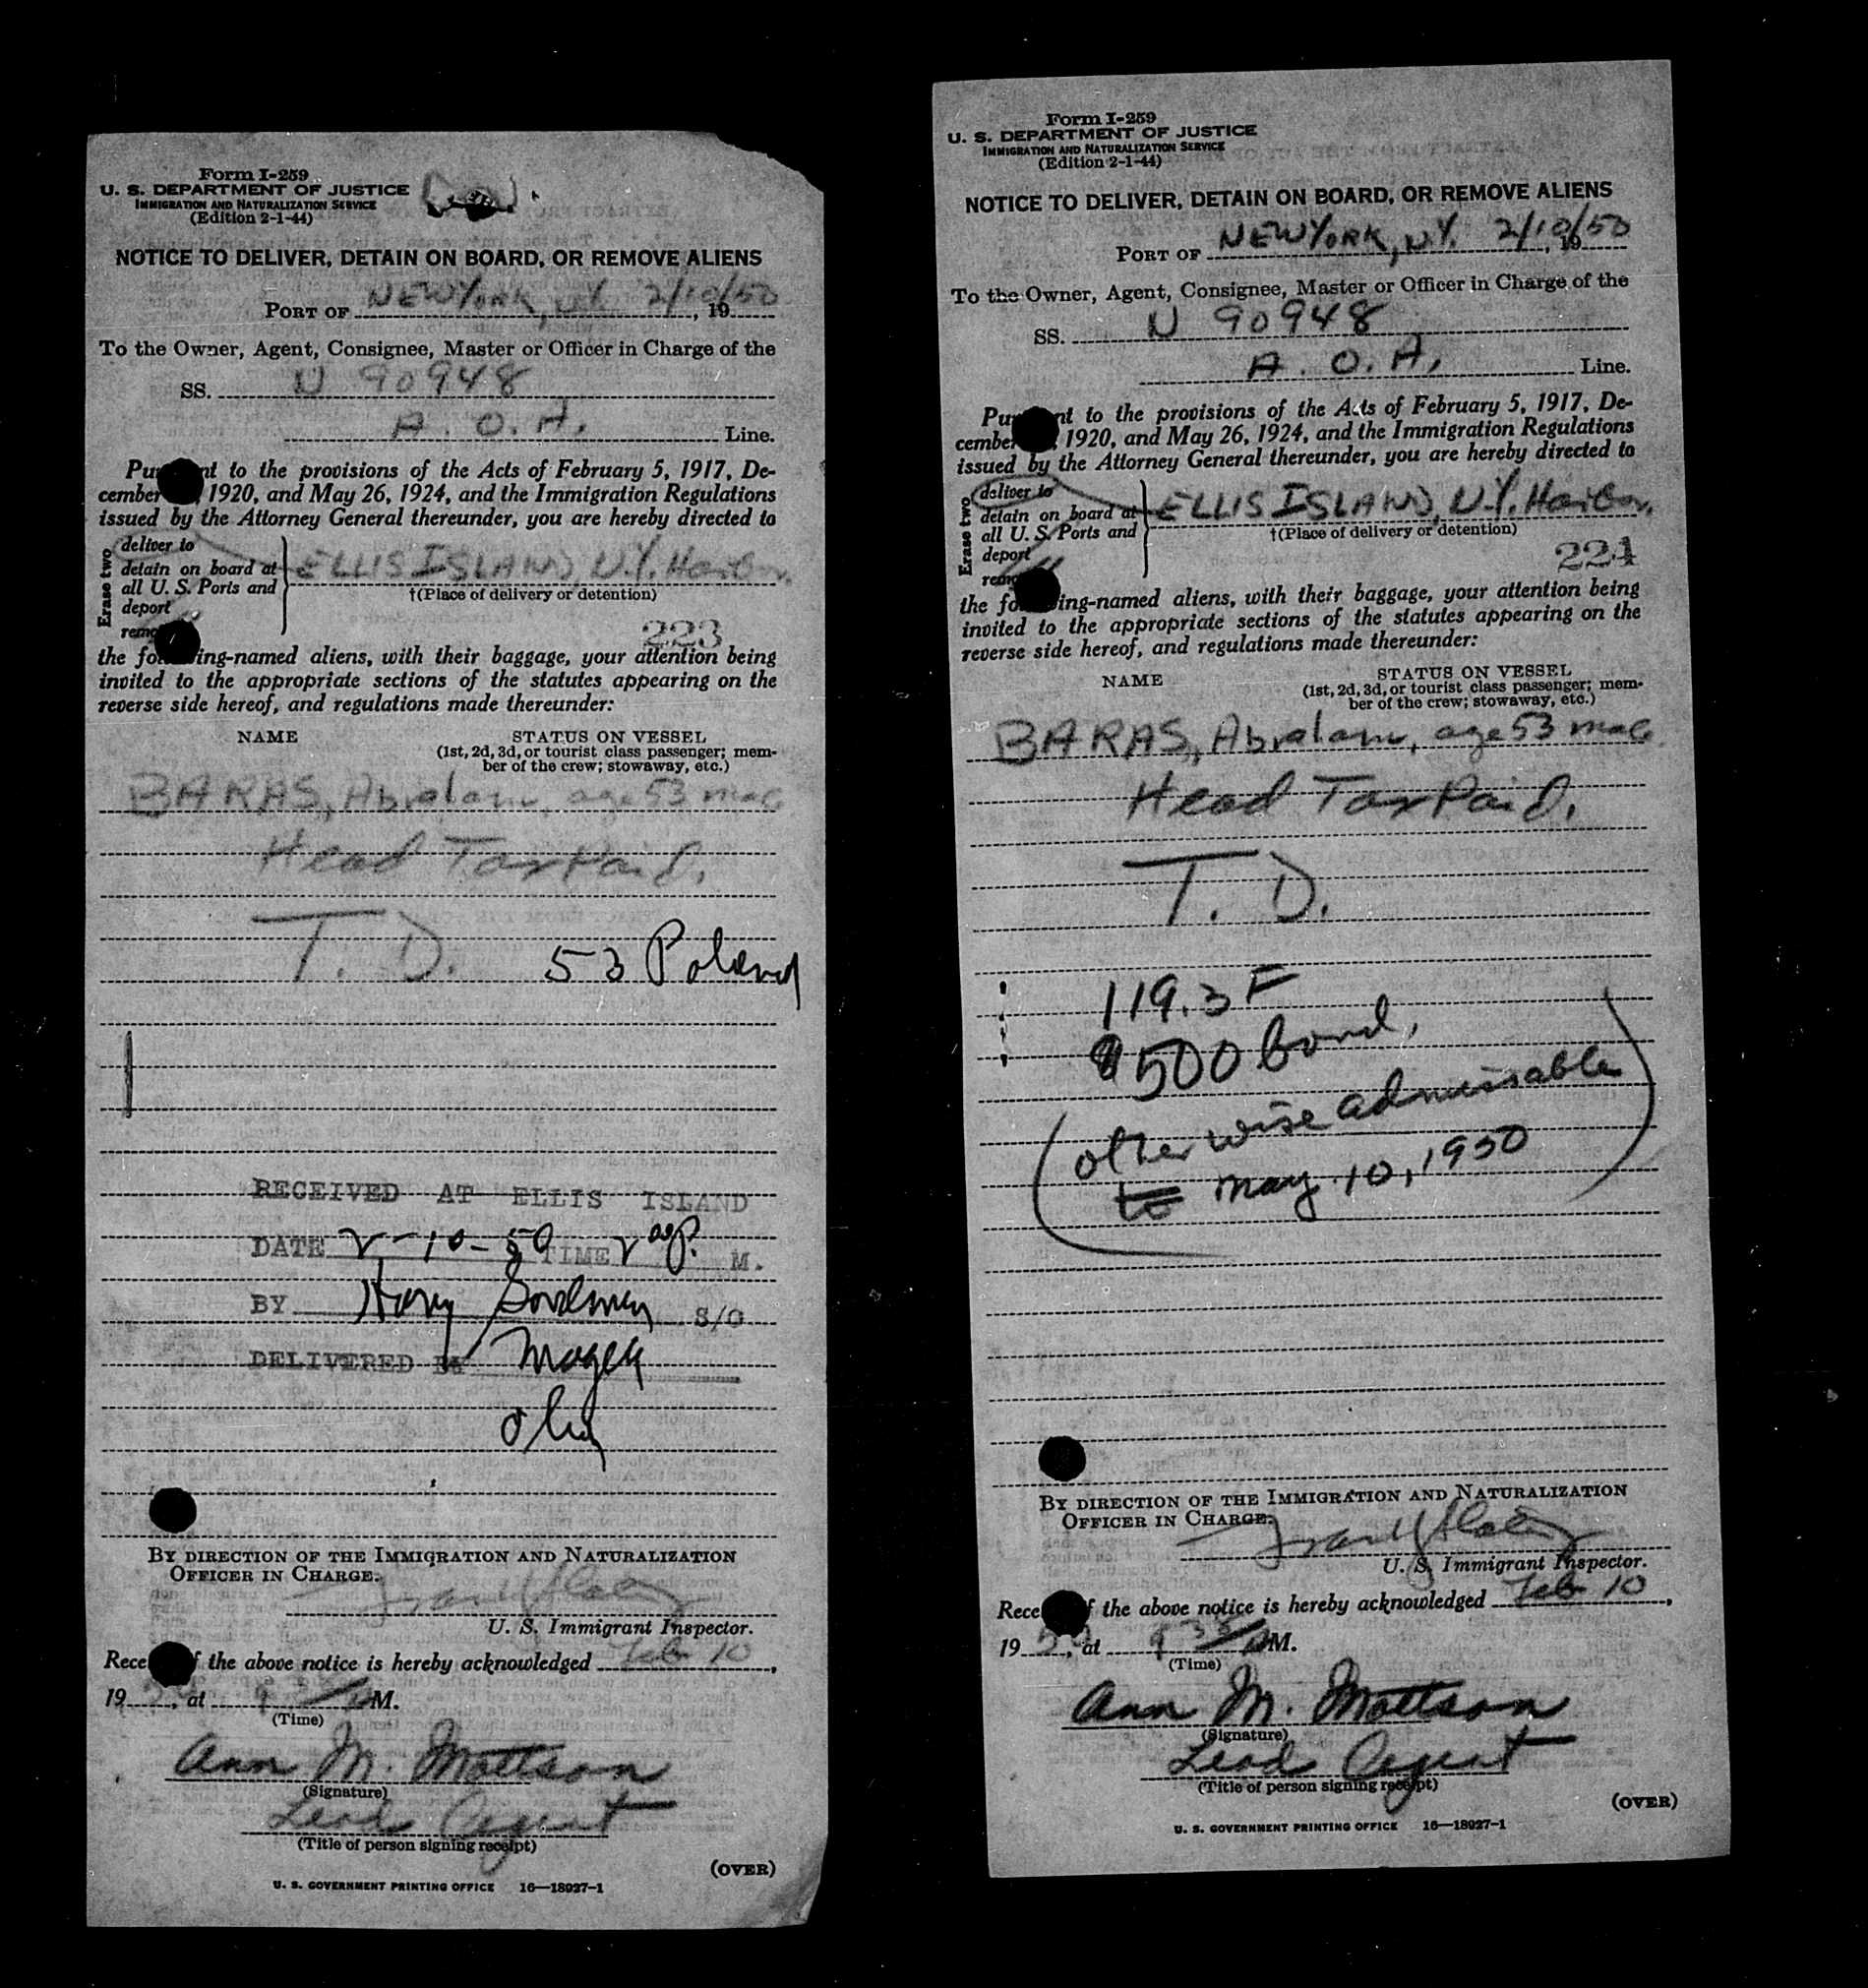 Form I-259
U. S. DEPARTMENT OF JUSTICE
IMMIGRATION AND NATURALIZATION SERVICE
(Edition 2-1-44)
NOTICE TO DELIVER, DETAIN ON BOARD, OR REMOVE ALIENS
PORT OF NEW YORK, N.Y. 2/10/50, 19
To the Owner, Agent, Consignee, Master or Officer in Charge of the
SS. N 90948
A. O. A. Line.
Pu nt to the provisions of the Acts of February 5, 1917, De-
cember 1920, and May 26, 1924, and the Immigration Regulations
issued by the Attorney General thereunder, you are hereby directed to
Erase two
deliver to
detain on board at ELLIS ISLAND, N.Y. Harbor.
all U. S. Ports and †(Place of delivery or detention)
deport
remo
223
the fo ing-named aliens, with their baggage, your attention being
invited to the appropriate sections of the statutes appearing on the
reverse side hereof, and regulations made thereunder:
NAME STATUS ON VESSEL
(1st, 2d, 3d, or tourist class passenger; mem-
ber of the crew; stowaway, etc.)
BARAS, Abraham, age 53 male
Head Tax Paid.
T. D. 53 Poland
RECEIVED AT ELLIS ISLAND
DATE 2-10-50 TIME 2 00 P. M.
BY Harry S/O
DELIVERED BY
BY DIRECTION OF THE IMMIGRATION AND NATURALIZATION
OFFICER IN CHARGE.
U. S. Immigrant Inspector.
Rece f the above notice is hereby acknowledged Feb 10,
19 50, at M.
(Time)
Ann M. Mattson
(Signature)
Lead Agent
(Title of person signing receipt)
(OVER)
U. S. GOVERNMENT PRINTING OFFICE 16—18927-1
Form I-259
U. S. DEPARTMENT OF JUSTICE
IMMIGRATION AND NATURALIZATION SERVICE
(Edition 2-1-44)
NOTICE TO DELIVER, DETAIN ON BOARD, OR REMOVE ALIENS
PORT OF NEW YORK, N.Y. 2/10/50, 19
To the Owner, Agent, Consignee, Master or Officer in Charge of the
SS. N 90948
A. O. A. Line.
Pu nt to the provisions of the Acts of February 5, 1917, De-
cember , 1920, and May 26, 1924, and the Immigration Regulations
issued by the Attorney General thereunder, you are hereby directed to
Erase two
deliver to
detain on board at ELLIS ISLAND, N.Y. Harbor.
all U. S. Ports and †(Place of delivery or detention)
deport
remo
224
the fo ing-named aliens, with their baggage, your attention being
invited to the appropriate sections of the statutes appearing on the
reverse side hereof, and regulations made thereunder:
NAME STATUS ON VESSEL
(1st, 2d, 3d, or tourist class passenger; mem-
ber of the crew; stowaway, etc.)
BARAS, Abraham, age 53 male
Head Tax Paid.
T. D.
119.3 F
$500 bond,
(otherwise admissable
to May 10, 1950)
BY DIRECTION OF THE IMMIGRATION AND NATURALIZATION
OFFICER IN CHARGE.
U. S. Immigrant Inspector.
Rece f the above notice is hereby acknowledged Feb 10,
19 50, at M.
(Time)
Ann M. Mattson
(Signature)
Lead Agent
(Title of person signing receipt)
(OVER)
U. S. GOVERNMENT PRINTING OFFICE 16—18927-1